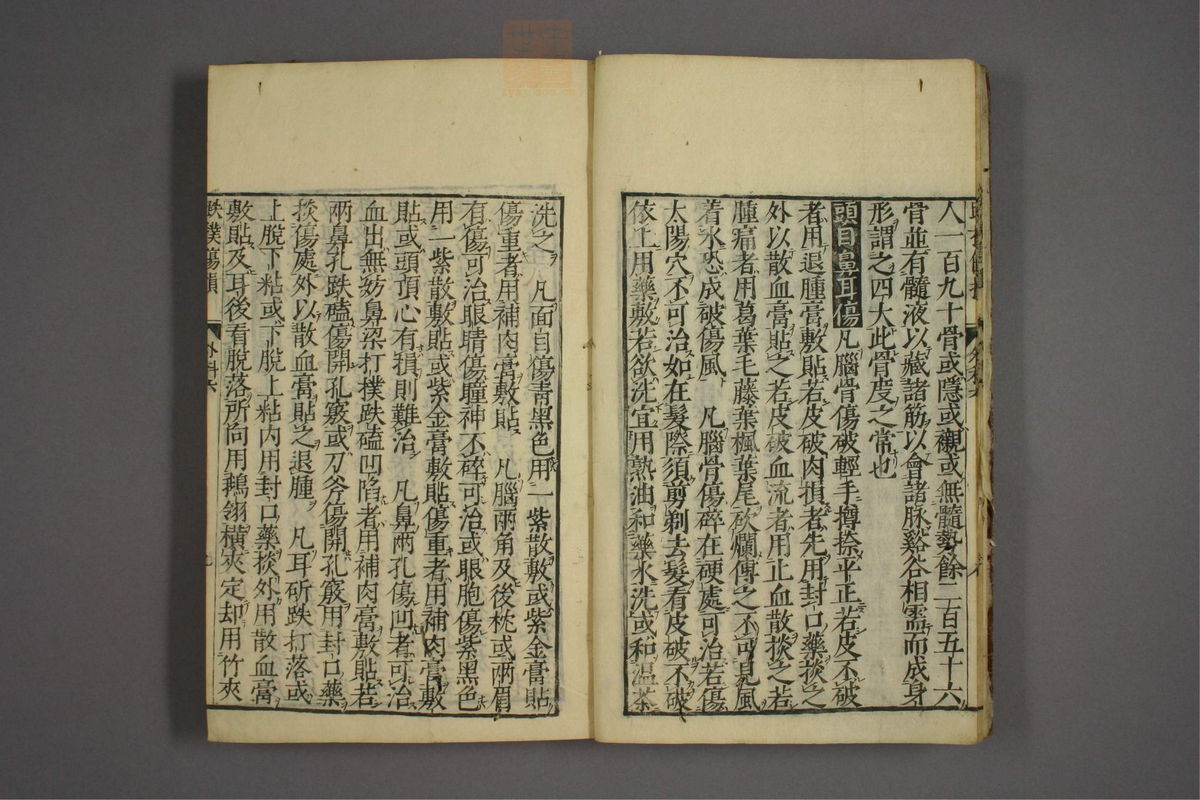 人一百九十骨或隱或襯或無髓勢餘二百五十六
骨並有髓液以藏諸筋以會諸脉谿谷相需而成身
形謂之四大此骨度之常也
頭目鼻耳傷 凡腦骨傷破輕手撙捺平正若皮不破
者用退腫膏敷貼若皮破肉損者先用封口藥掞之
外以散血膏貼之若皮破血流者用止血散掞之若
腫痛者用葛葉毛藤葉楓葉尾砍爛傅之不可見風
着水恐成破傷風 凡腦骨傷碎在硬處可治若傷
太陽穴不可治如在髮際須剪剃去髮看皮破不破
依上用藥敷若欲洗宜用熟油和藥水洗或和温茶
洗之 凡面目傷青黑色用一紫散敷或紫金膏貼
傷重者用補肉膏敷貼 凡腦兩角及後枕或兩眉
有傷可治眼睛傷瞳神不碎可治或眼胞傷紫黑色
用一紫散敷貼或紫金膏敷貼傷重者用補肉膏敷
貼或頭頂心有損則難治 凡鼻兩孔傷凹者可治
血出無妨鼻梁打撲跌磕凹陷者用補肉膏敷貼若
兩鼻孔跌磕傷開孔竅或刀斧傷開孔竅用封口藥
掞傷處外以散血膏貼之退腫 凡耳斫跌打落或
上脫下粘或下脫上粘內用封口藥掞外用散血膏
敷貼及耳後看脫落所向用鵝翎橫夾定却用竹夾
跌撲傷損
外科